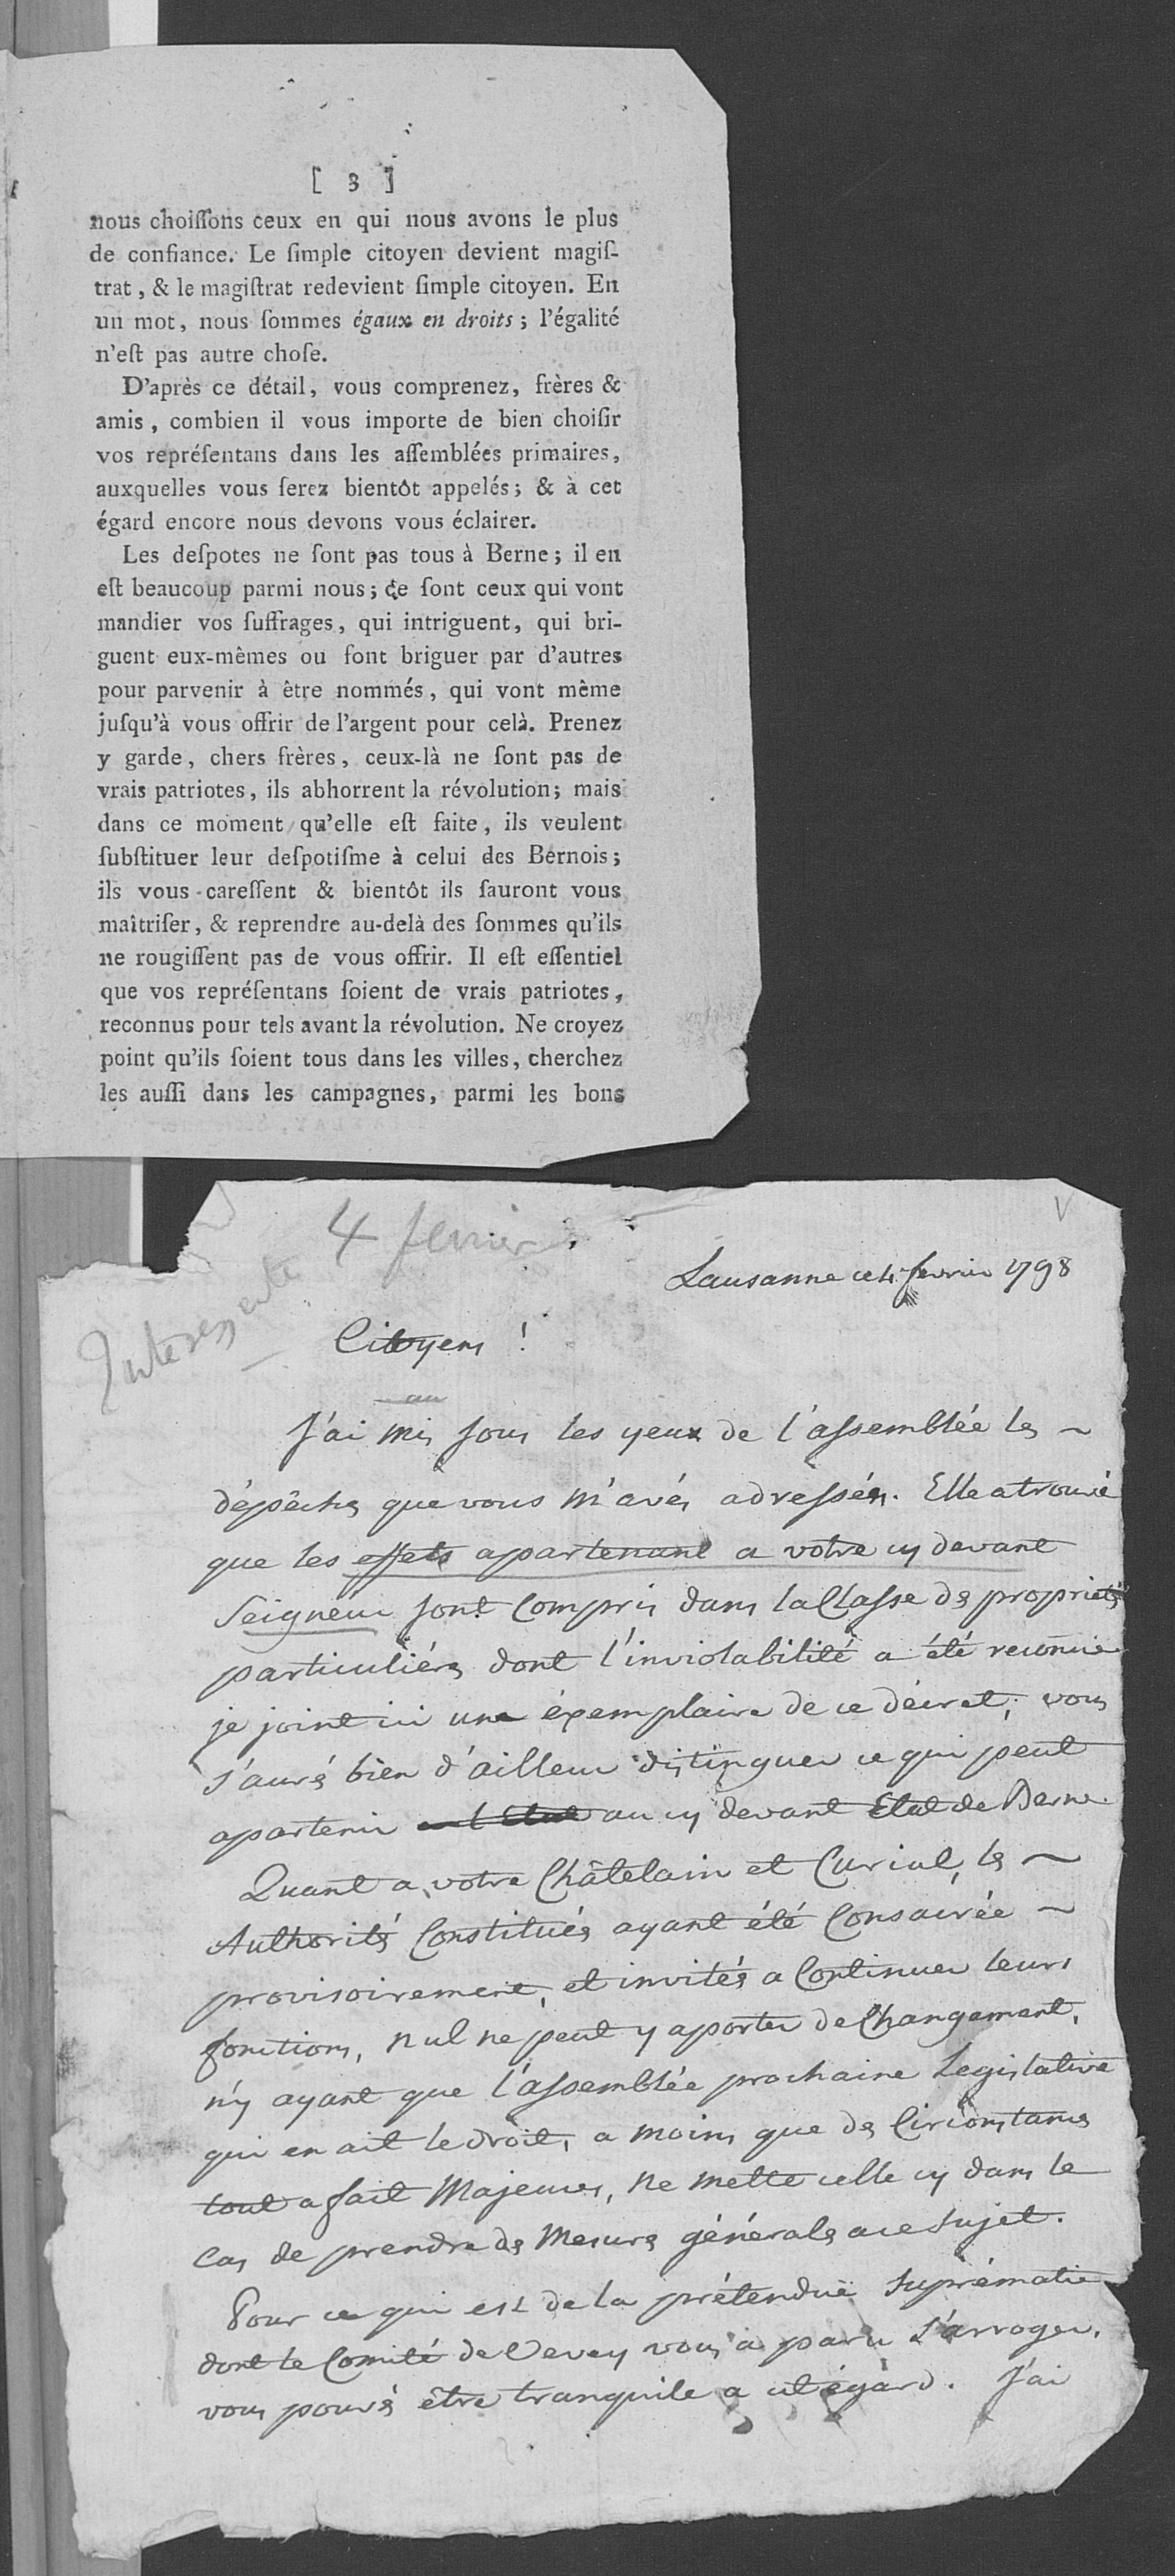 [ 3 ]
nous choiſſons ceux en qui nous avons le plus
de confiance. Le ſimple citoyen devient magiſ-
trat, & le magiſtrat redevient ſimple citoyen. En
un mot, nous ſommes égaux en droits; l'égalité
n'eſt pas autre choſe.
D'après ce détail, vous comprenez, frères &
amis, combien il vous importe de bien choiſir
vos repréſentans dans les aſſemblées primaires,
auxquelles vous ſerez bientôt appelés; & à cet
égard encore nous devons vous éclairer.
Les deſpotes ne ſont pas tous à Berne; il en
eſt beaucoup parmi nous; ce ſont ceux qui vont
mandier vos ſuffrages, qui intriguent, qui bri-
guent eux-mêmes ou font briguer par d'autres
pour parvenir à être nommés, qui vont même
juſqu'à vous offrir de l'argent pour celà. Prenez
y garde, chers frères, ceux-là ne ſont pas de
vrais patriotes, ils abhorrent la révolution; mais
dans ce moment qu'elle eſt faite, ils veulent
ſubſtituer leur deſpotiſme à celui des Bernois;
ils vous careſſent & bientôt ils ſauront vous
maîtriſer, & reprendre au-delà des ſommes qu'ils
ne rougiſſent pas de vous offrir. Il eſt eſſentiel
que vos repréſentans ſoient de vrais patriotes,
reconnus pour tels avant la révolution. Ne croyez
point qu'ils ſoient tous dans les villes, cherchez
les auſſi dans les campagnes, parmi les bons
4 fevrier
Interessante
Lausanne ce 4 fevrier 1798
Citoyens !
J'ai mis sous les yeux de l'assemblée les ~
dépêches que vous m'avés adressées. Elle a trouvé
que les effets apartenant a votre cy devant
Seigneur sont compris dans la Classe des propriétés
particulières dont l'inviolabilité a été reconnue
je joint ici une éxemplaire de ce décret; vous
s'aurés bien d'ailleur distinguer ce qui peut
apartenir au cy devant Etat de Berne.
Quant a votre Châtelain et Curial, les ~
Authorités Constitués ayant été Consacrée ~
provisoirement, et invités a Continuer leurs
fonctions, nul ne peut y aporter de Changement,
n'y ayant que l'assemblée prochaine Legislative
qui en ait le droit, a moins que des Circonstances
tout a fait Majeures, ne mette celle cy dans le
cas de prendre des Mesures générales a ce sujet.
Pour ce qui est de la prétenduë suprématie
dont le Comité de Vevey vous a paru s'arroger,
vous pouvés être tranquile a cet égard. J'ai